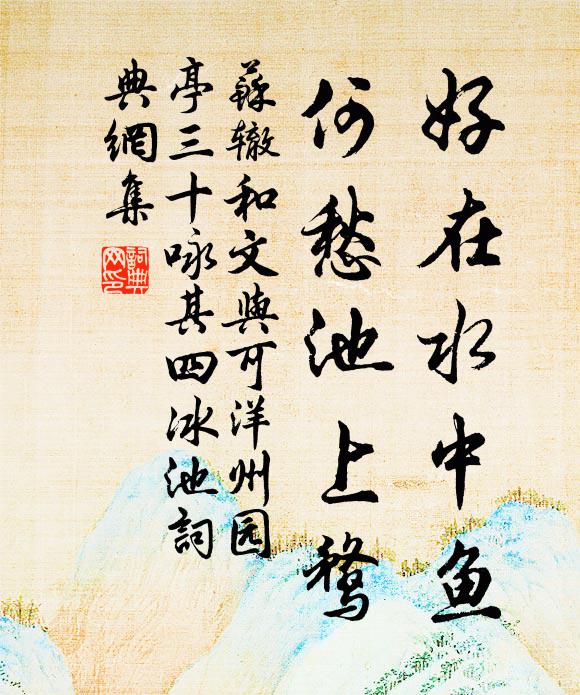 好在水中鱼
何愁池上鹜
蘇辙和文與可洋州园
亭三十咏其四冰池詞
典網集
詞典
网印